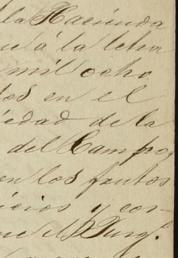 la Hacienda
que á la letra
mil ocho
tos en el
iedad de la
del Campo,
en los frutos
icios y con-
que el Juzg.